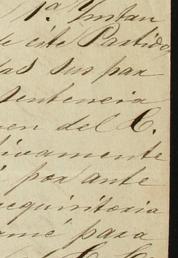 1ª Instan
de este Partido
das sus par
sentencia
en del C.
tivamente
por ante
equisitoria
para